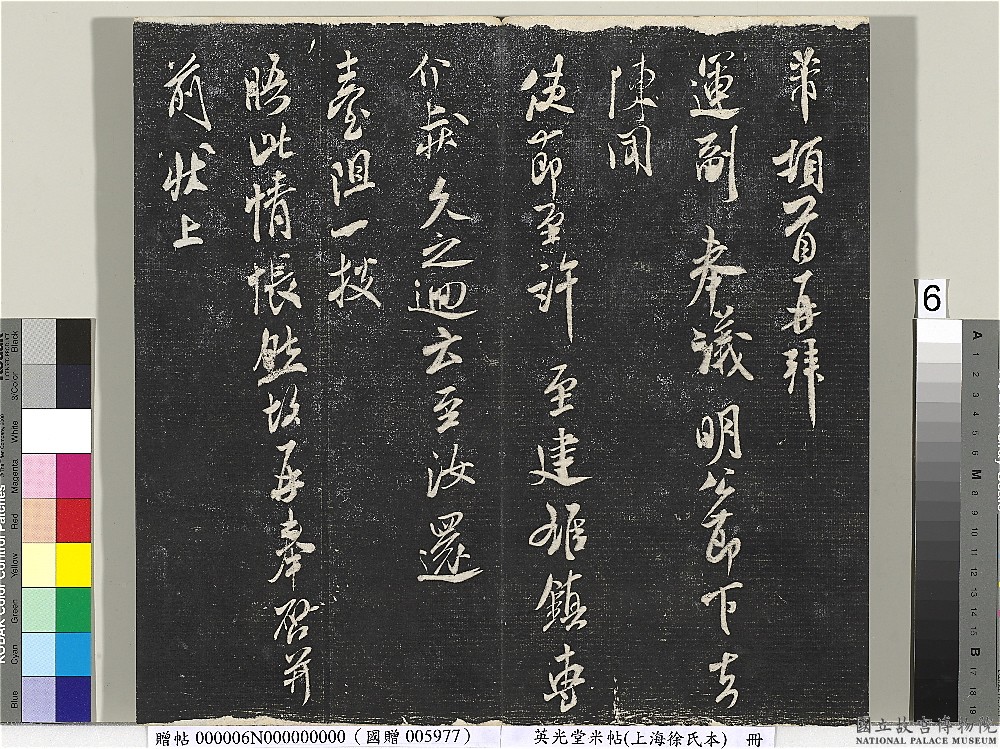 芾頓首再拜
運副 奉議 明公節下去
陳聞
使節至許 至建雄鎮專
介歲久之迴云至汝還
臺阻一投
晤此情悵然故再奉啓并
前狀上
6
贈帖 000006N000000000 (國贈 005977)
英光堂米帖(上海徐氏本) 冊
國立故宮博物院
NATIONAL PALACE MUSEUM
Black
3/Color
White
Magenta
Red
Yellow
Green
Cyan
Blue
KODAK Color Control Patches
A 1 2 3 4 5 6 M 8 9 10 11 12 13 14 15 B 17 18 19